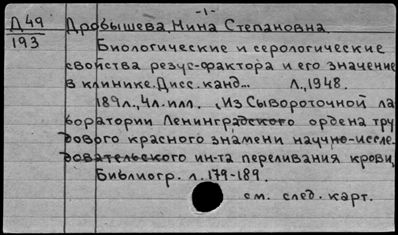 -1-
Д49
193
Дробышева, Нина Степановна
Биологические и серологические
свойства резус-фактора и его значение
в клинике. Дисс. канд... Л., 1948.
189л., 4л. илл. (Из Сывороточной ла
боратории Ленинградского ордена тру
дового красного знамени научно-иссле-
довательского ин-та переливания крови,
Библиогр. л. 179-189.
см. след. карт.